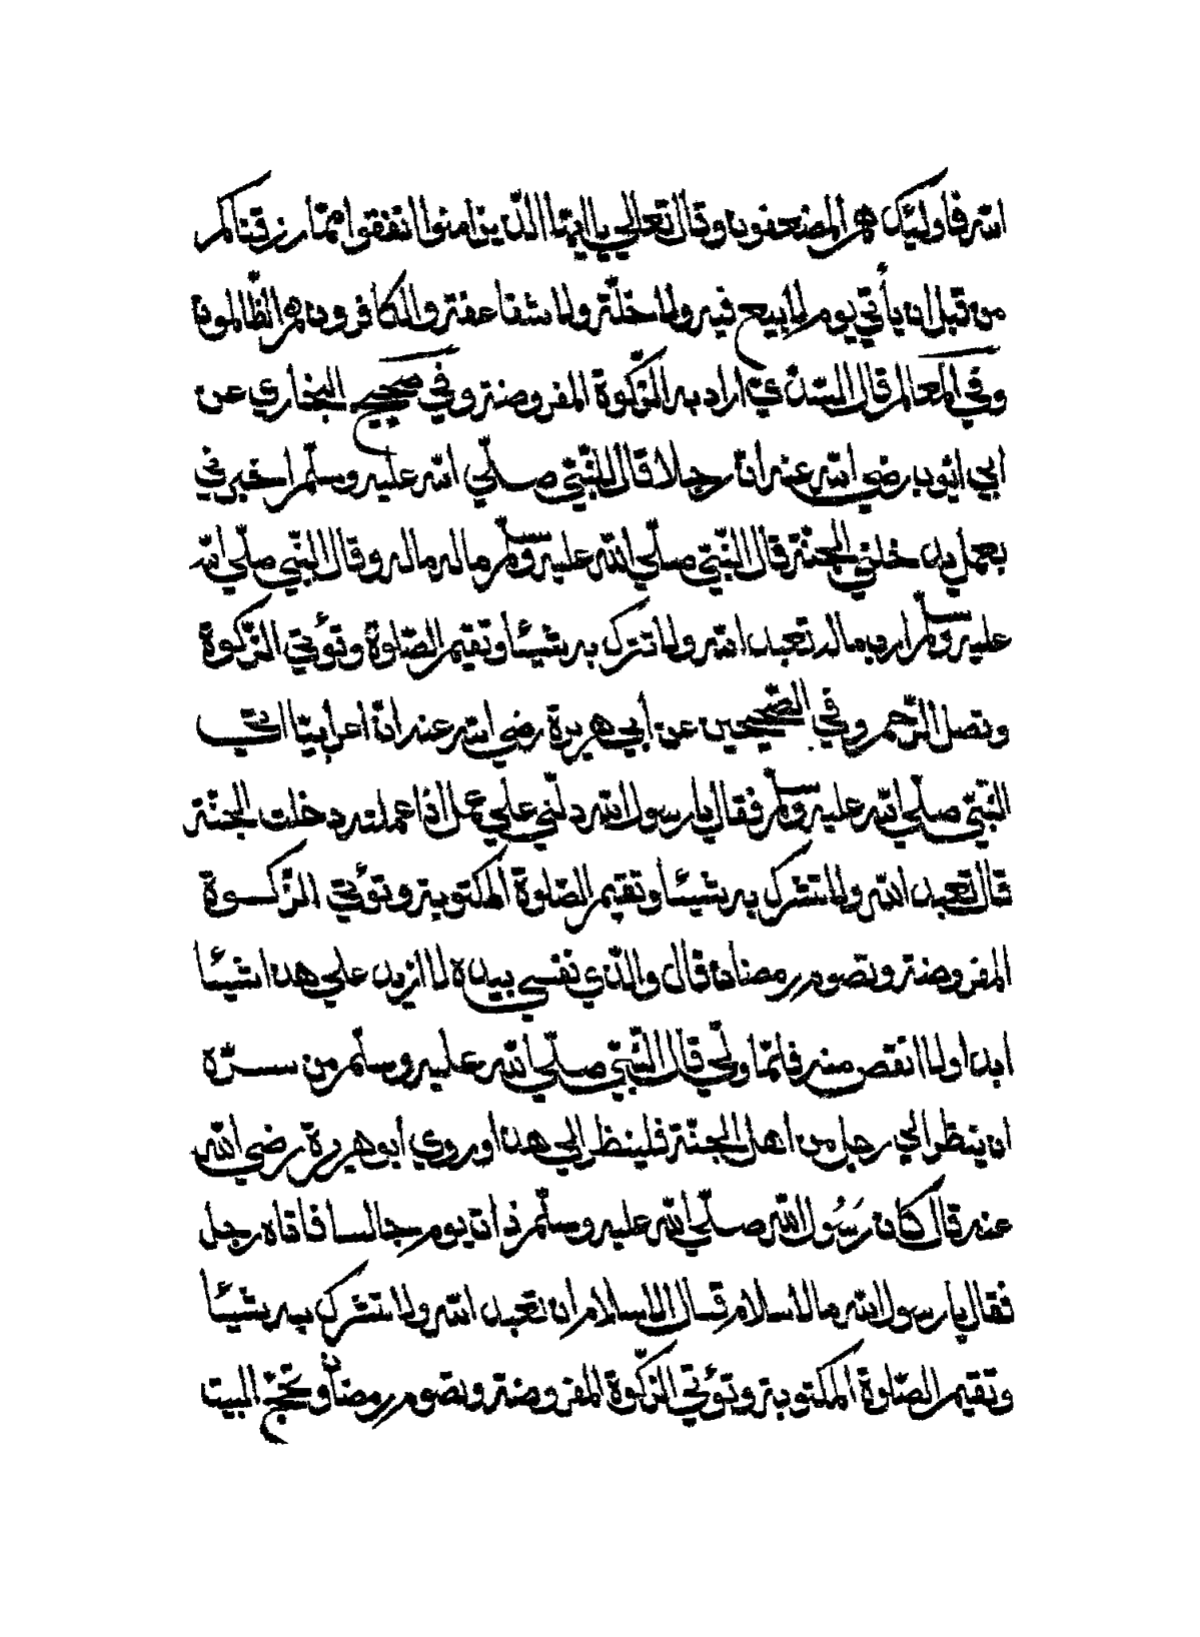 الله فاولئك هم المضعفون وقال تعالي يا ايها الذين امنوا انفقوا مما رزقناكم
من قبل ان يأتي يوم لا بيع فيه ولا خلة ولا شفاعة والكافرون هم الظالمون
وفي المعالم قال السدي اراد به الزكوة المفروضة وفي صحيح البخاري عن
ابي ايوب رضي الله عنه ان رجلا قال للنبي صلي الله عليه وسلم اخبرني
بعمل يدخلني الجنة قال النبي صلي الله عليه وسلم ماله ماله وقال النبي صلي الله
عليه وسلم ارب ماله تعبد الله ولا تشرك به شيئا وتقيم الصلوة وتؤتي الزكوة
وتصل الرحم وفي الصحيحين عن أبي هريرة رضي الله عنه ان اعرابيا اتي
النبي صلي الله عليه وسلم فقال يا رسول الله دلني علي عمل اذا عملته دخلت الجنة
قال تعبد الله ولا تشرك به شيئا وتقيم الصلوة المكتوبة وتؤتي الزكوة
المفروضة وتصوم رمضان قال والذي نفسي بيده لا ازيد علي هذا شيئا
ابدا ولا انقص منه فلما ولي قال النبي صلي الله عليه وسلم من سره
ان ينظر الي رجل من اهل الجنة فلينظر الي هذا وروي أبو هريرة رضي الله
عنه قال كان رَسُول الله صلي الله عليه وسلم ذات يوم جالسا فاتاه رجل
فقال يا رسول الله ما الاسلام قال الاسلام ان تعبد الله ولا تشرك به شيئا
وتقيم الصلوة المكتوبة وتؤتي الزكوة المفروضة وتصوم رمضان وتحج البيت